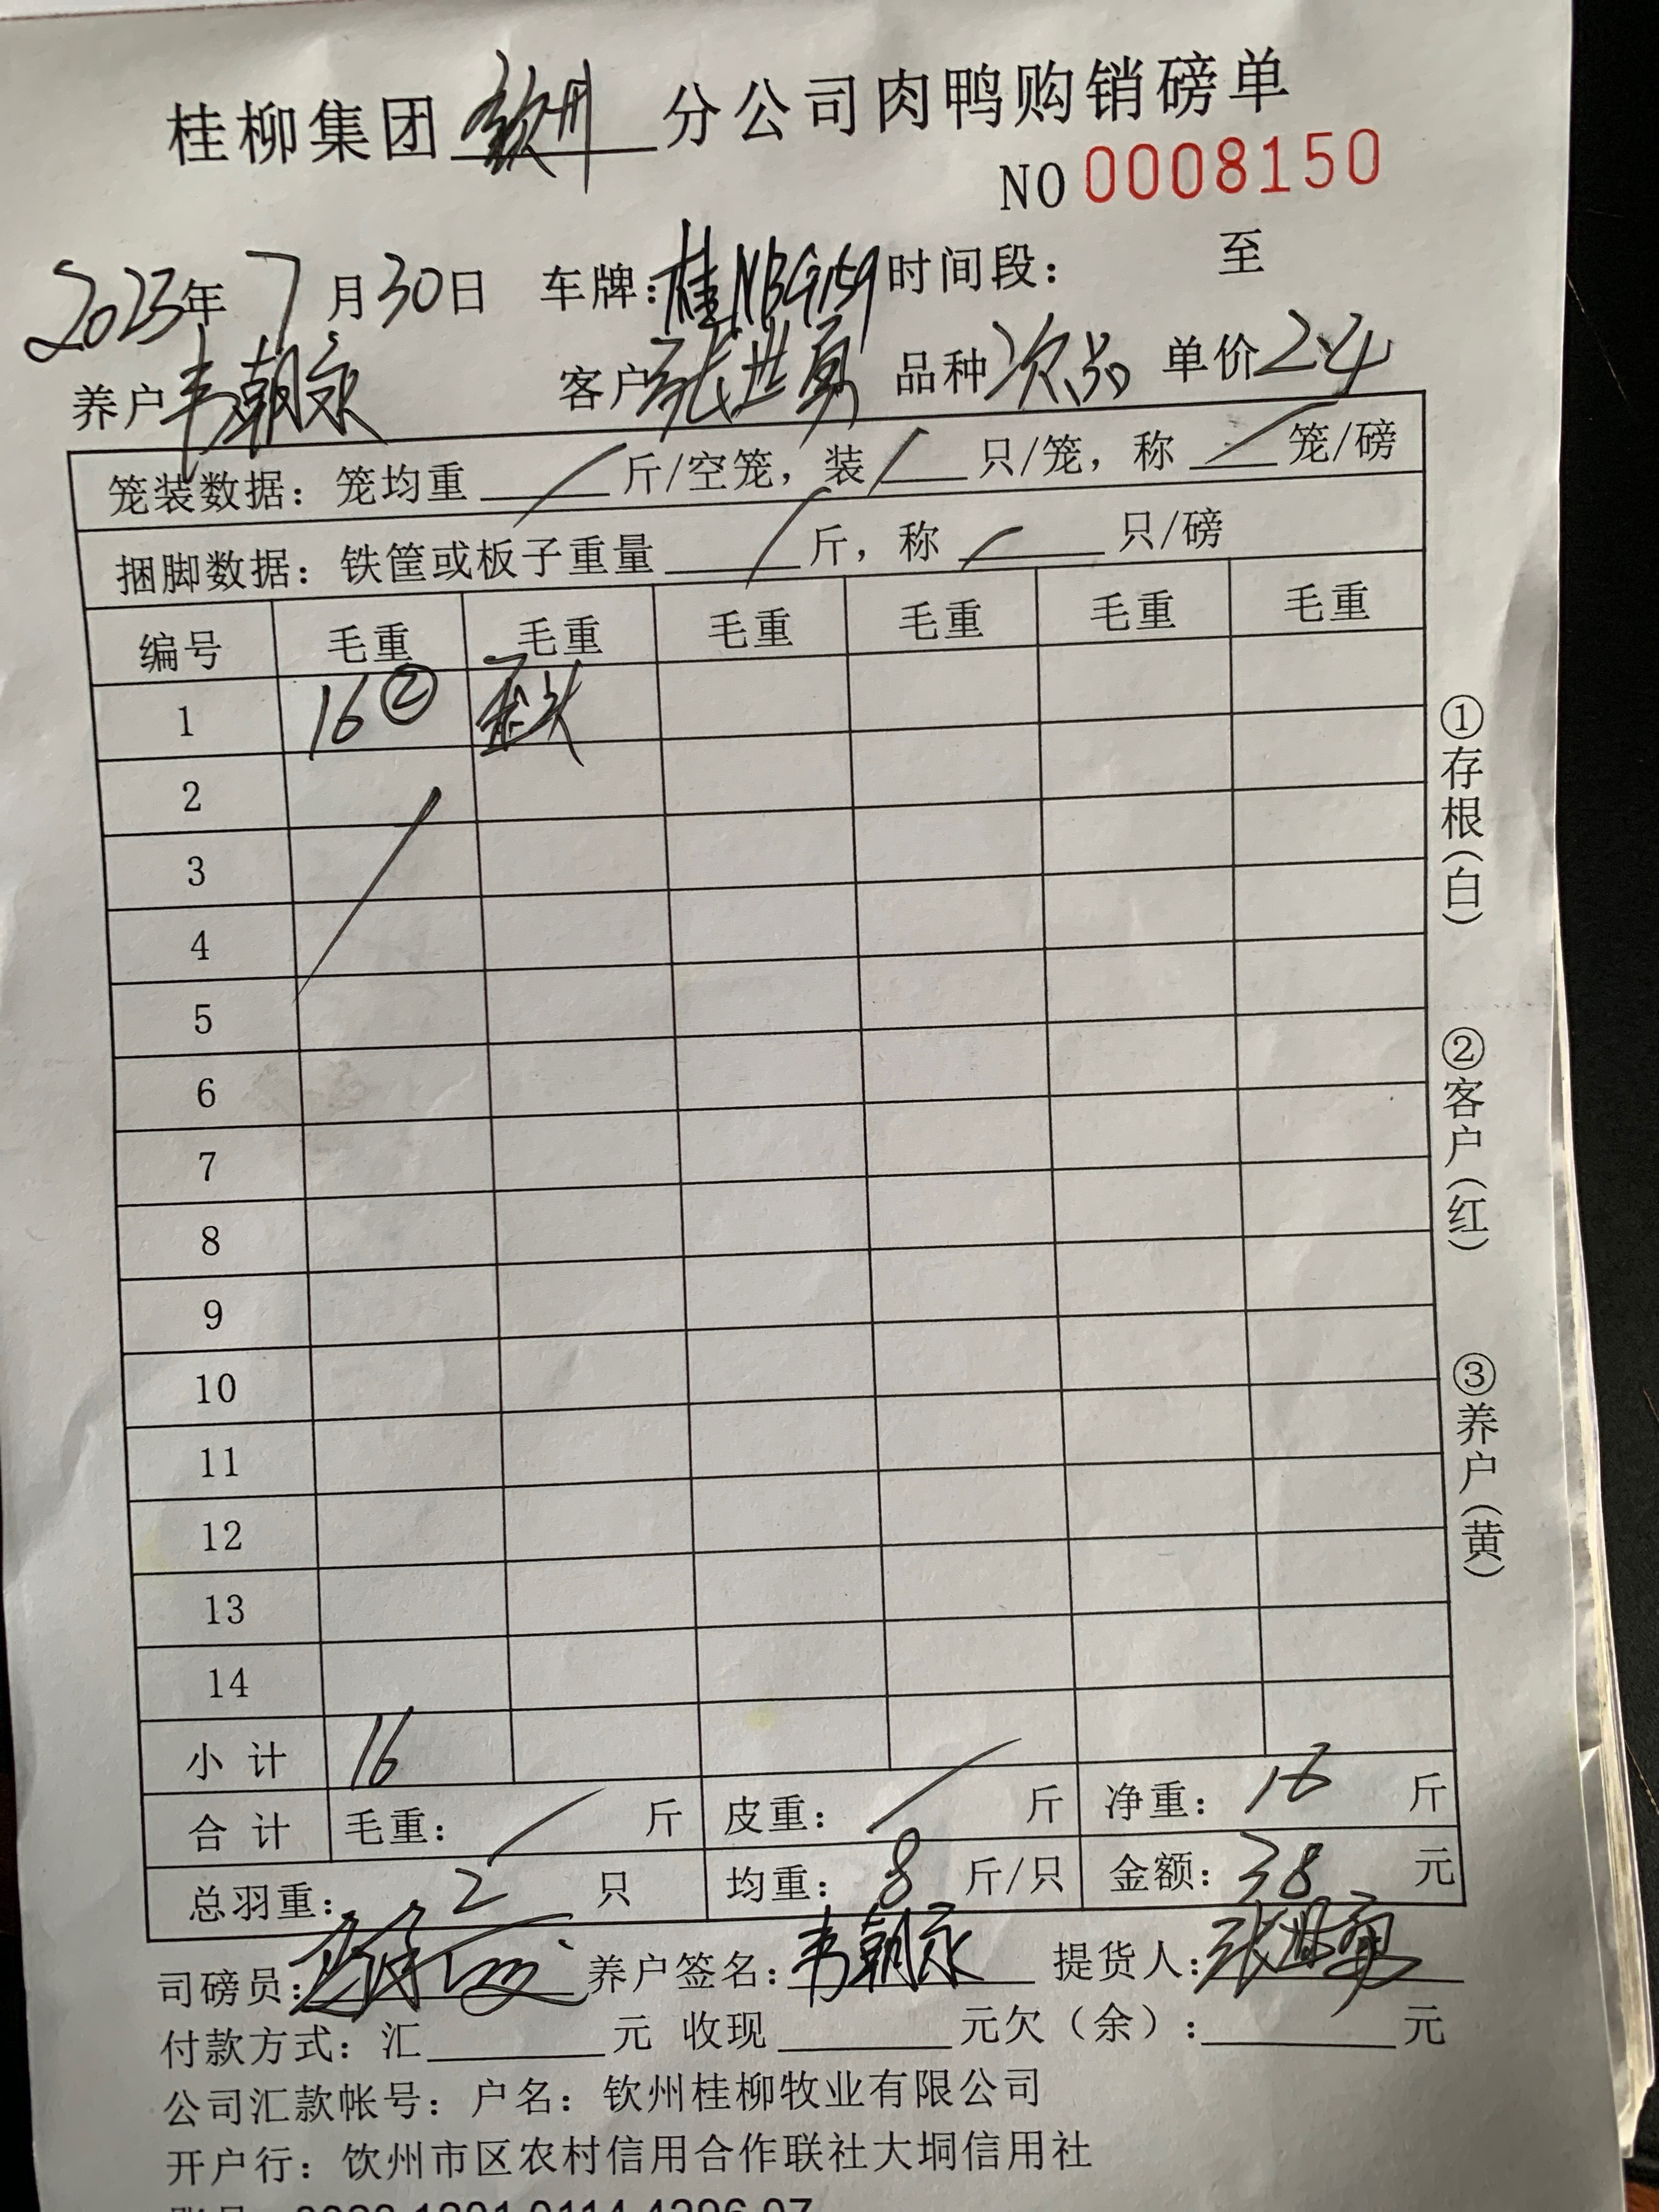 桂柳集团钦州分公司肉鸭购销磅单
NO 0008150
2023年7月30日 车牌:桂NBG159 时间段: 至
养户韦朝永 客户张世勇 品种次品 单价2.4
笼装数据: 笼均重 斤/空笼, 装 只/笼, 称 笼/磅
捆脚数据: 铁筐或板子重量 斤, 称 只/磅
编号 毛重 毛重 毛重 毛重 毛重 毛重
1 16②
2
3
4
5
6
7
8
9
10
11
12
13
14
小计 16
合计 毛重: 斤 皮重: 斤 净重: 16 斤
总羽重: 2 只 均重: 8 斤/只 金额: 38 元
司磅员: 养户签名: 韦朝永 提货人: 张世勇
付款方式: 汇 元 收现 元欠(余): 元
公司汇款帐号: 户名: 钦州桂柳牧业有限公司
开户行: 钦州市区农村信用合作联社大垌信用社
①存根(白)
②客户(红)
③养户(黄)